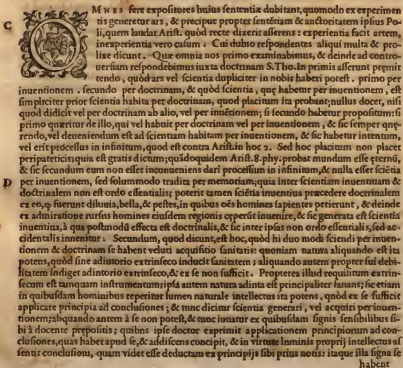 C
OMNES fere expositores huius sententiæ dubitant, quomodo ex experimen
tis generetur ars, & precipue propter sentẽtiam & auctoritatem ipsius Po
li, quem laudat Arist. quod recte dixerit asserens: experientia facit artem,
inexperientia vero casum. Cui dubio respondentes aliqui multa & pro
lixe dicunt. Que omnia nos primo examinabimus, & deinde ad contro-
uersiam respondebimus iuxta doctrinam S. Tho. In primis asserunt premit
tendo, quòd ars vel scientia dupliciter in nobis haberi potest. primo per
inuentionem. secundo per doctrinam, & quòd scientia, quę habetur per inuentionem, est
simpliciter prior scientia habita per doctrinam, quod placitum ita probant; nullus docet, nisi
quod didicit vel per doctrinam ab alio, vel per inuẽtionem; si secundo habetur propositum: si
primo quæritur de illo, qui vel habuit per doctrinam vel per inuentionem, & sic semper quę-
rendo, vel deueniendum est ad scientiam habitam per inuentionem, & sic habetur intentum,
vel erit processus in infinitum, quod est contra Arist. in hoc 2. Sed hoc placitum non placet
peripateticis; quia est gratis dictum; quãdoquidem Arist. 8. phy. probat mundum esse ęternũ,
& sic secundum eum non esset inconueniens dari processum in infinitum, & nulla esset sciẽtia
D
per inuentionem, sed solummodo tradita per memoriam; quia inter scientiam inuentiuam &
doctrinalem non est ordo essentialis; poterit tamen sciẽtia inuentiua pręcedere doctrinalem
ex eo, q̃ fuerunt diluuia, bella, & pestes, in quibus oẽs homines sapientes perierunt, & deinde
ex admiratione rursus homines eiusdem regionis cęperũt inuenire, & sic generata est scientia
inuentiua, à qua postmodũ effecta est doctrinalis, & sic inter ipsas non ordo essentialis, sed ac-
cidentalis inuenitur. Secundum, quod dicunt, est hoc, quòd hi duo modi sciendi per inuen-
tionem & doctrinam se habent veluti acquisitio sanitatis: quoniam natura aliquando est ita
potens, quòd sine adiutorio extrinseco inducit sanitatem; aliquando autem propter sui debi-
litatem indiget adiutorio extrinseco, & ex se non sufficit. Propterea illud requisitum extrin-
secum est tamquam instrumentum; ipsa autem natura adiuta est principaliter sanans; sic etiam
in quibusdam hominibus reperitur lumen naturale intellectus ita potens, quòd ex se sufficit
applicare principia ad conclusiones; & tunc dicitur scientia generari, vel acquiri per inuen-
tionem; aliquando autem à se non potest, & tunc iuuatur ex quibusdam signis sensibilibus si-
bi à docente prępositis; quibus ipse doctor exprimit applicationem principiorum ad con-
clusiones, quas habet apud se, & addiscens concipit, & in virtute luminis proprij intellectus as
sentit conclusioni, quam videt esse deductam ex principijs sibi prius notis: itaque illa signa se
habent